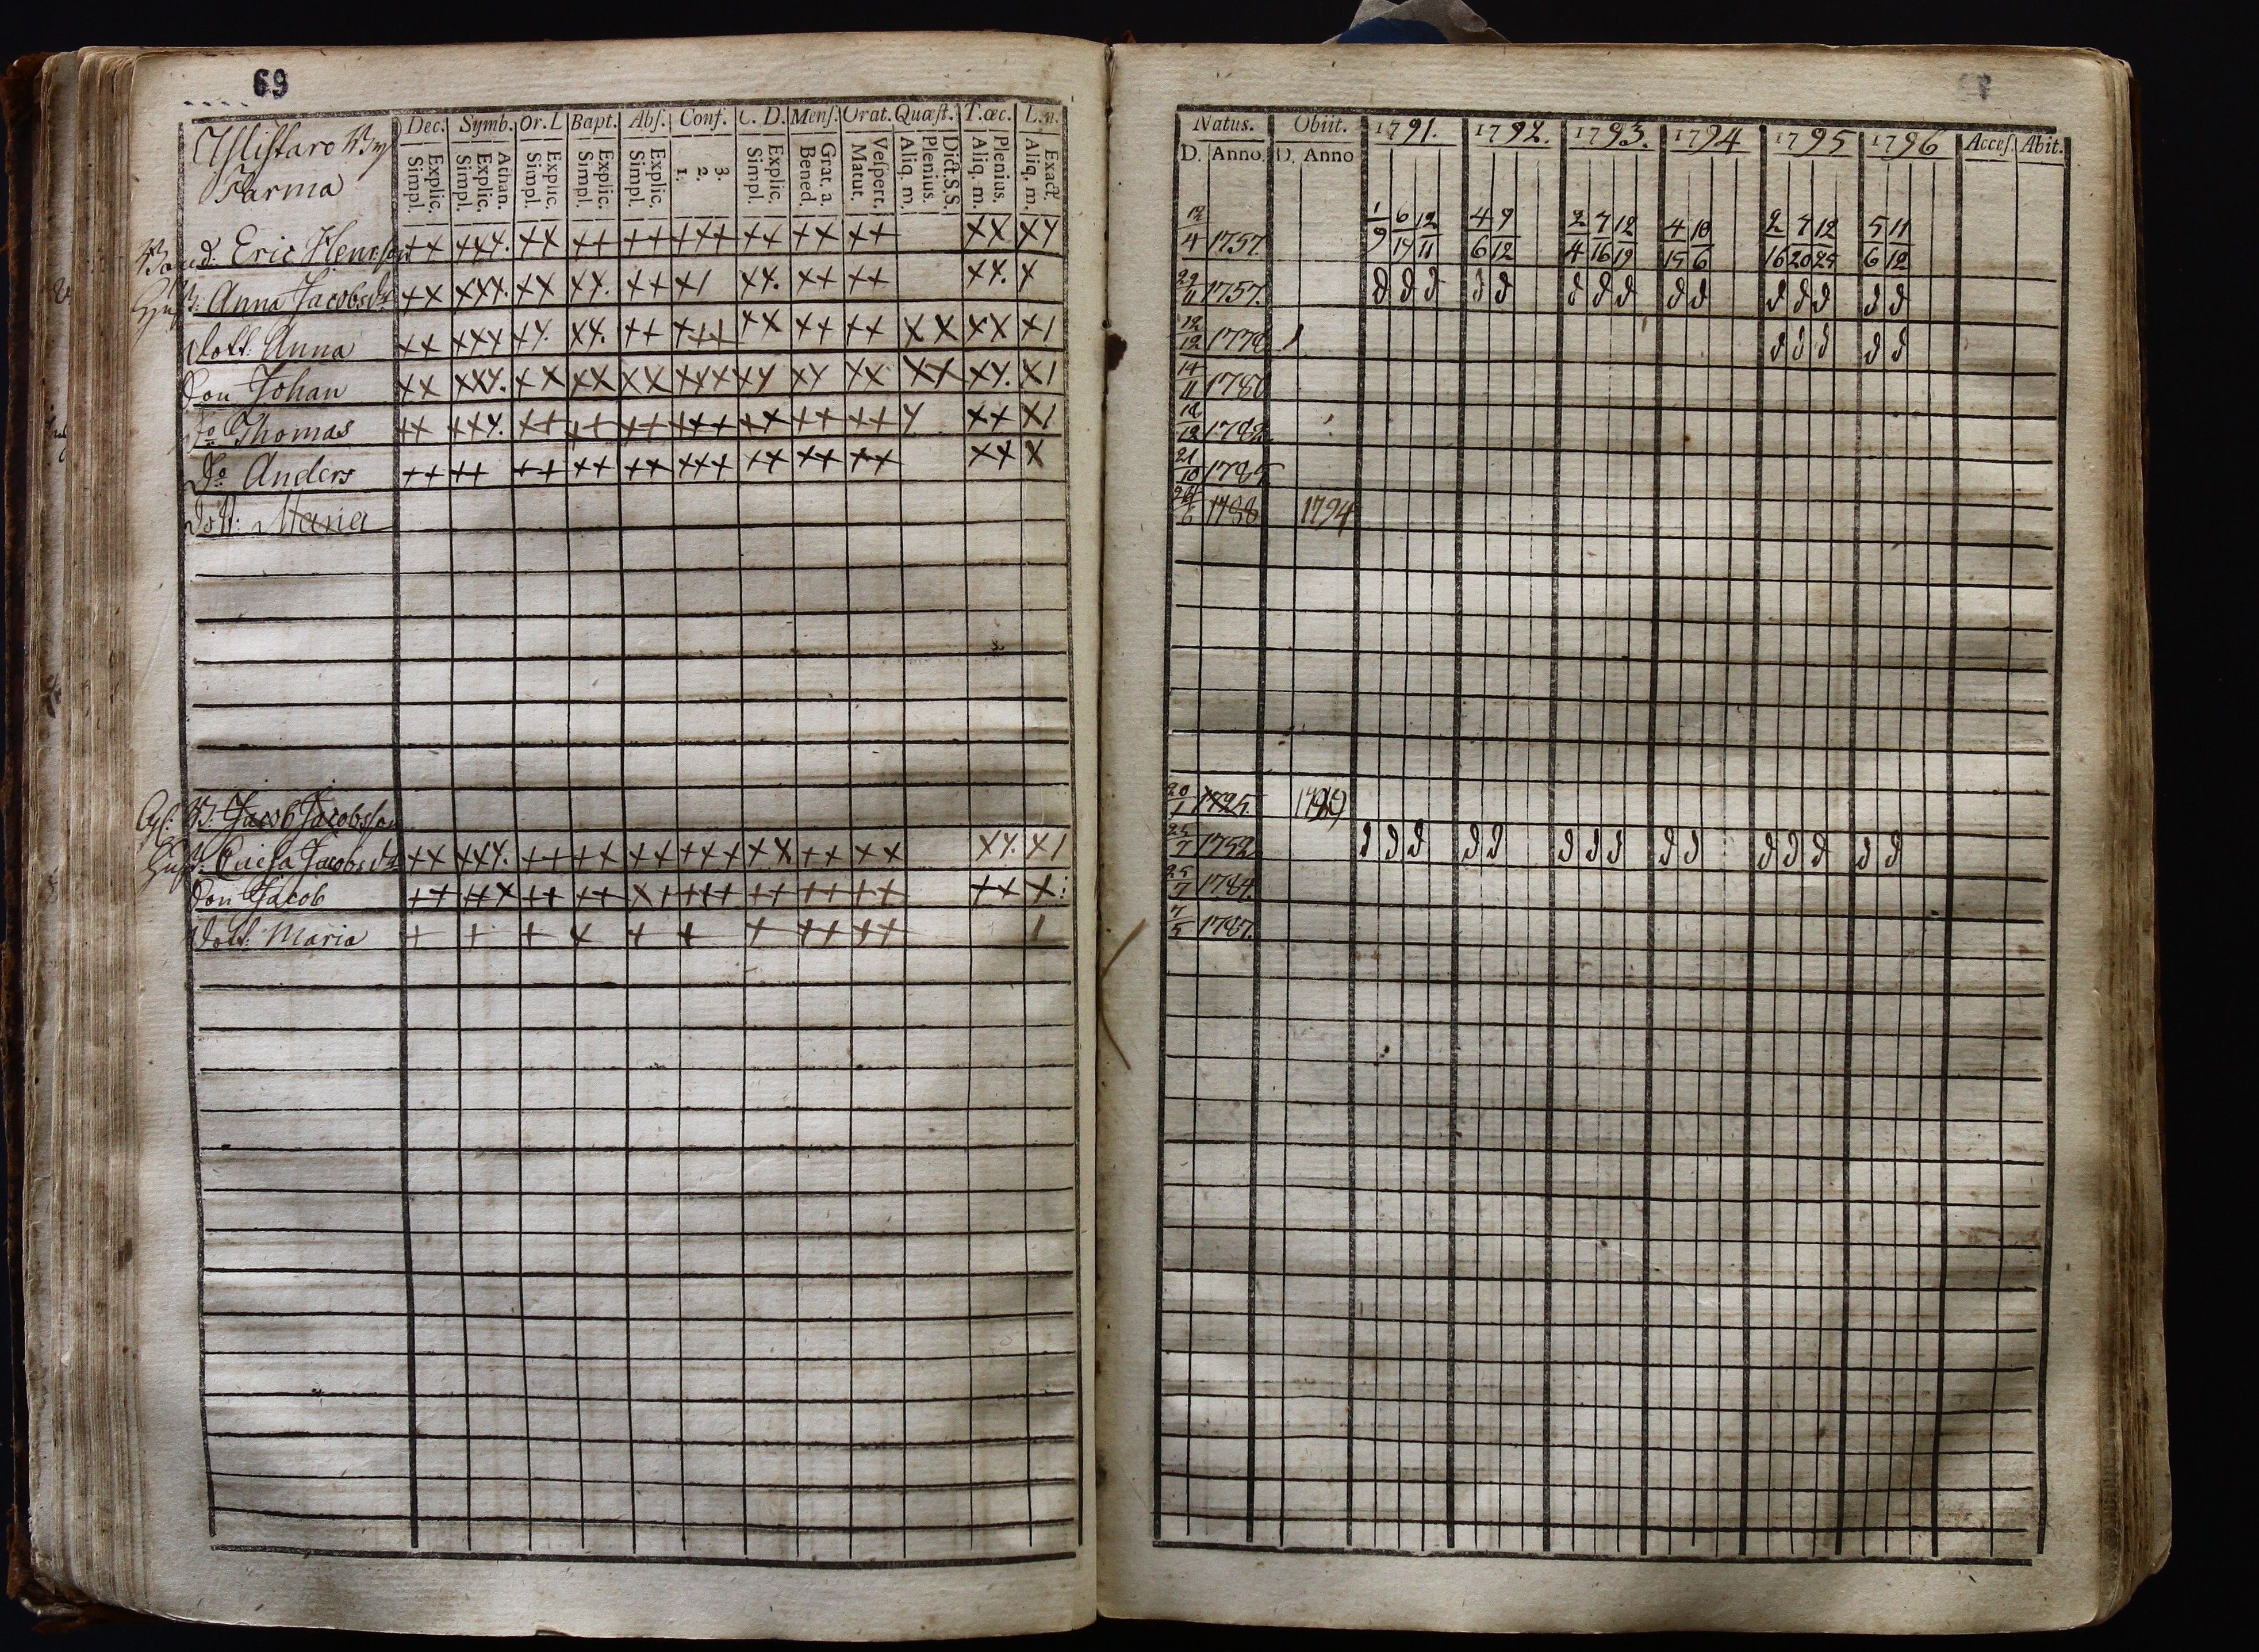 69
Dec. Symb. Or. L Bapt. Abs. Conf. C. D. Mens. Orat. Quæst. T. œc. L. n.
Explic. Simpl. Athan. Explic. Simpl. Explic. Simpl. Explic. Simpl. Explic. Simpl. 3. 2. 1. Explic. Simpl. Grat. a. Bened. Vespert. Matut. Dict. S. S. Plenius. Aliq. m. Plenius. Aliq. m. Exact. Aliq. m.
Ylistaro By
Parma
Eric Henrsson ++ +++ ++ ++ ++ +++ ++ ++ ++ xx xx
Hust: Anna Jacobsdr ++ xxx. xx xx. ++ x1 xx. ++ ++ xx. x
dott: Anna ++ xxx xx. xx. ++ +++ xx ++ ++ xx xx x1
Son Johan xx xxx. xx xx xx xxx xx xx xx xx xx. x1
Do Thomas ++ xxx. ++ ++ ++ +++ ++ ++ ++ x ++ x1
Do Anders ++ ++ ++ ++ ++ +++ ++ ++ ++ xx x
dott: Maria
B. Jacob Jacobsson
Hust: Caisa Jacobsdr ++ xxx. ++ ++ ++ +++ xx ++ xx xx. x1
Son Jacob ++ ++x ++ ++ x+ +++ ++ ++ ++ ++ x
dott: Maria + + + + + + + ++ ++ 1
Natus. Obiit. 1791. 1792. 1793. 1794 1795 1796 Acces. Abit.
D. Anno. D. Anno
12/4 1757. 1/9 6/19 12/11 4/6 9/12 2/4 7/16 12/19 4/15 10/6 2/16 7/20 12/25 5/6 11/12
29/11 1757. d d d d d d d d d d d d d d d
12/12 1778 d d d d d
14/11 1780
12/12 1782
21/10 1785
6 1788 1794
20/1 1725.
25/7 1752 d d d d d d d d d d d d d d d
25/7 1784.
7/5 1787.